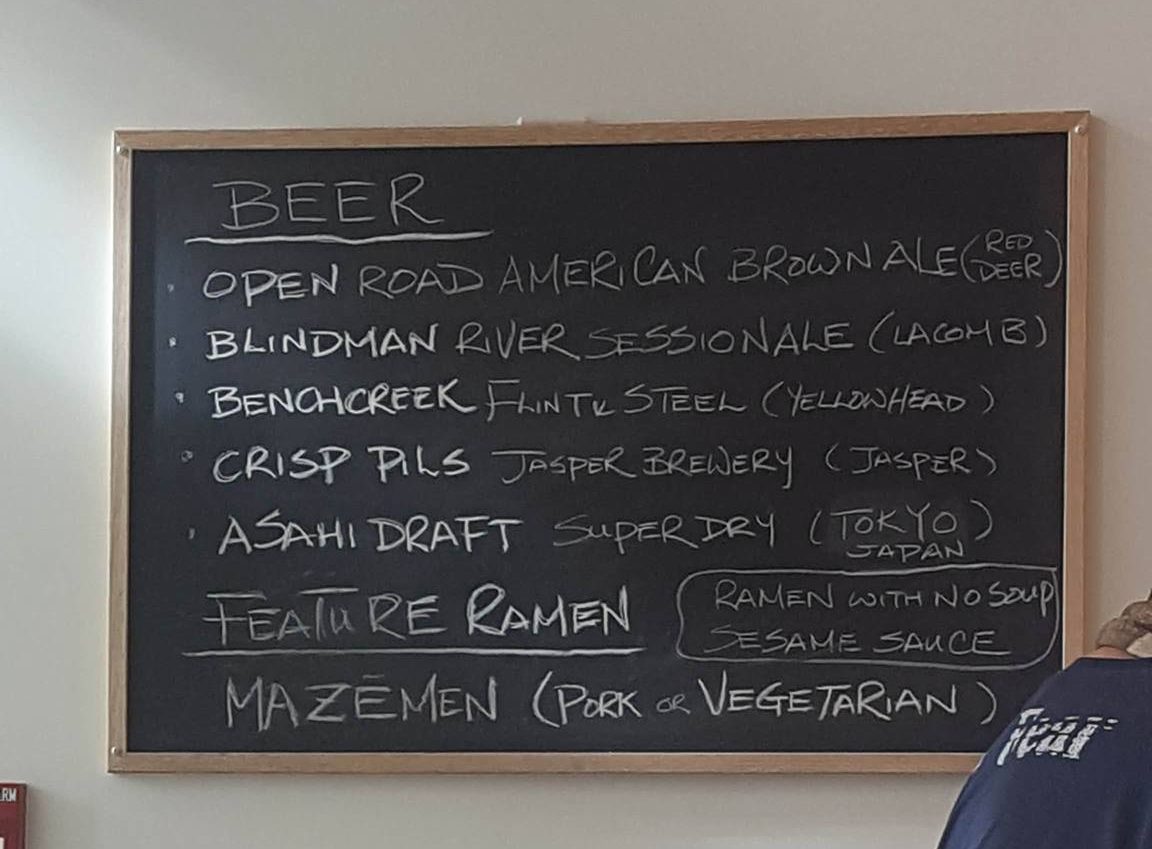 BEER
• OPEN ROAD AMERICAN BROWN ALE (RED DEER)
• BLINDMAN RIVER SESSIONALE (LACOMB)
• BENCHCREEK FLINT & STEEL (YELLOWHEAD)
• CRISP PILS JASPER BREWERY (JASPER)
• ASAHI DRAFT SUPER DRY (TOKYO JAPAN)
FEATURE RAMEN
RAMEN WITH NO SOUP
SESAME SAUCE
MAZĒMEN (PORK OR VEGETARIAN)